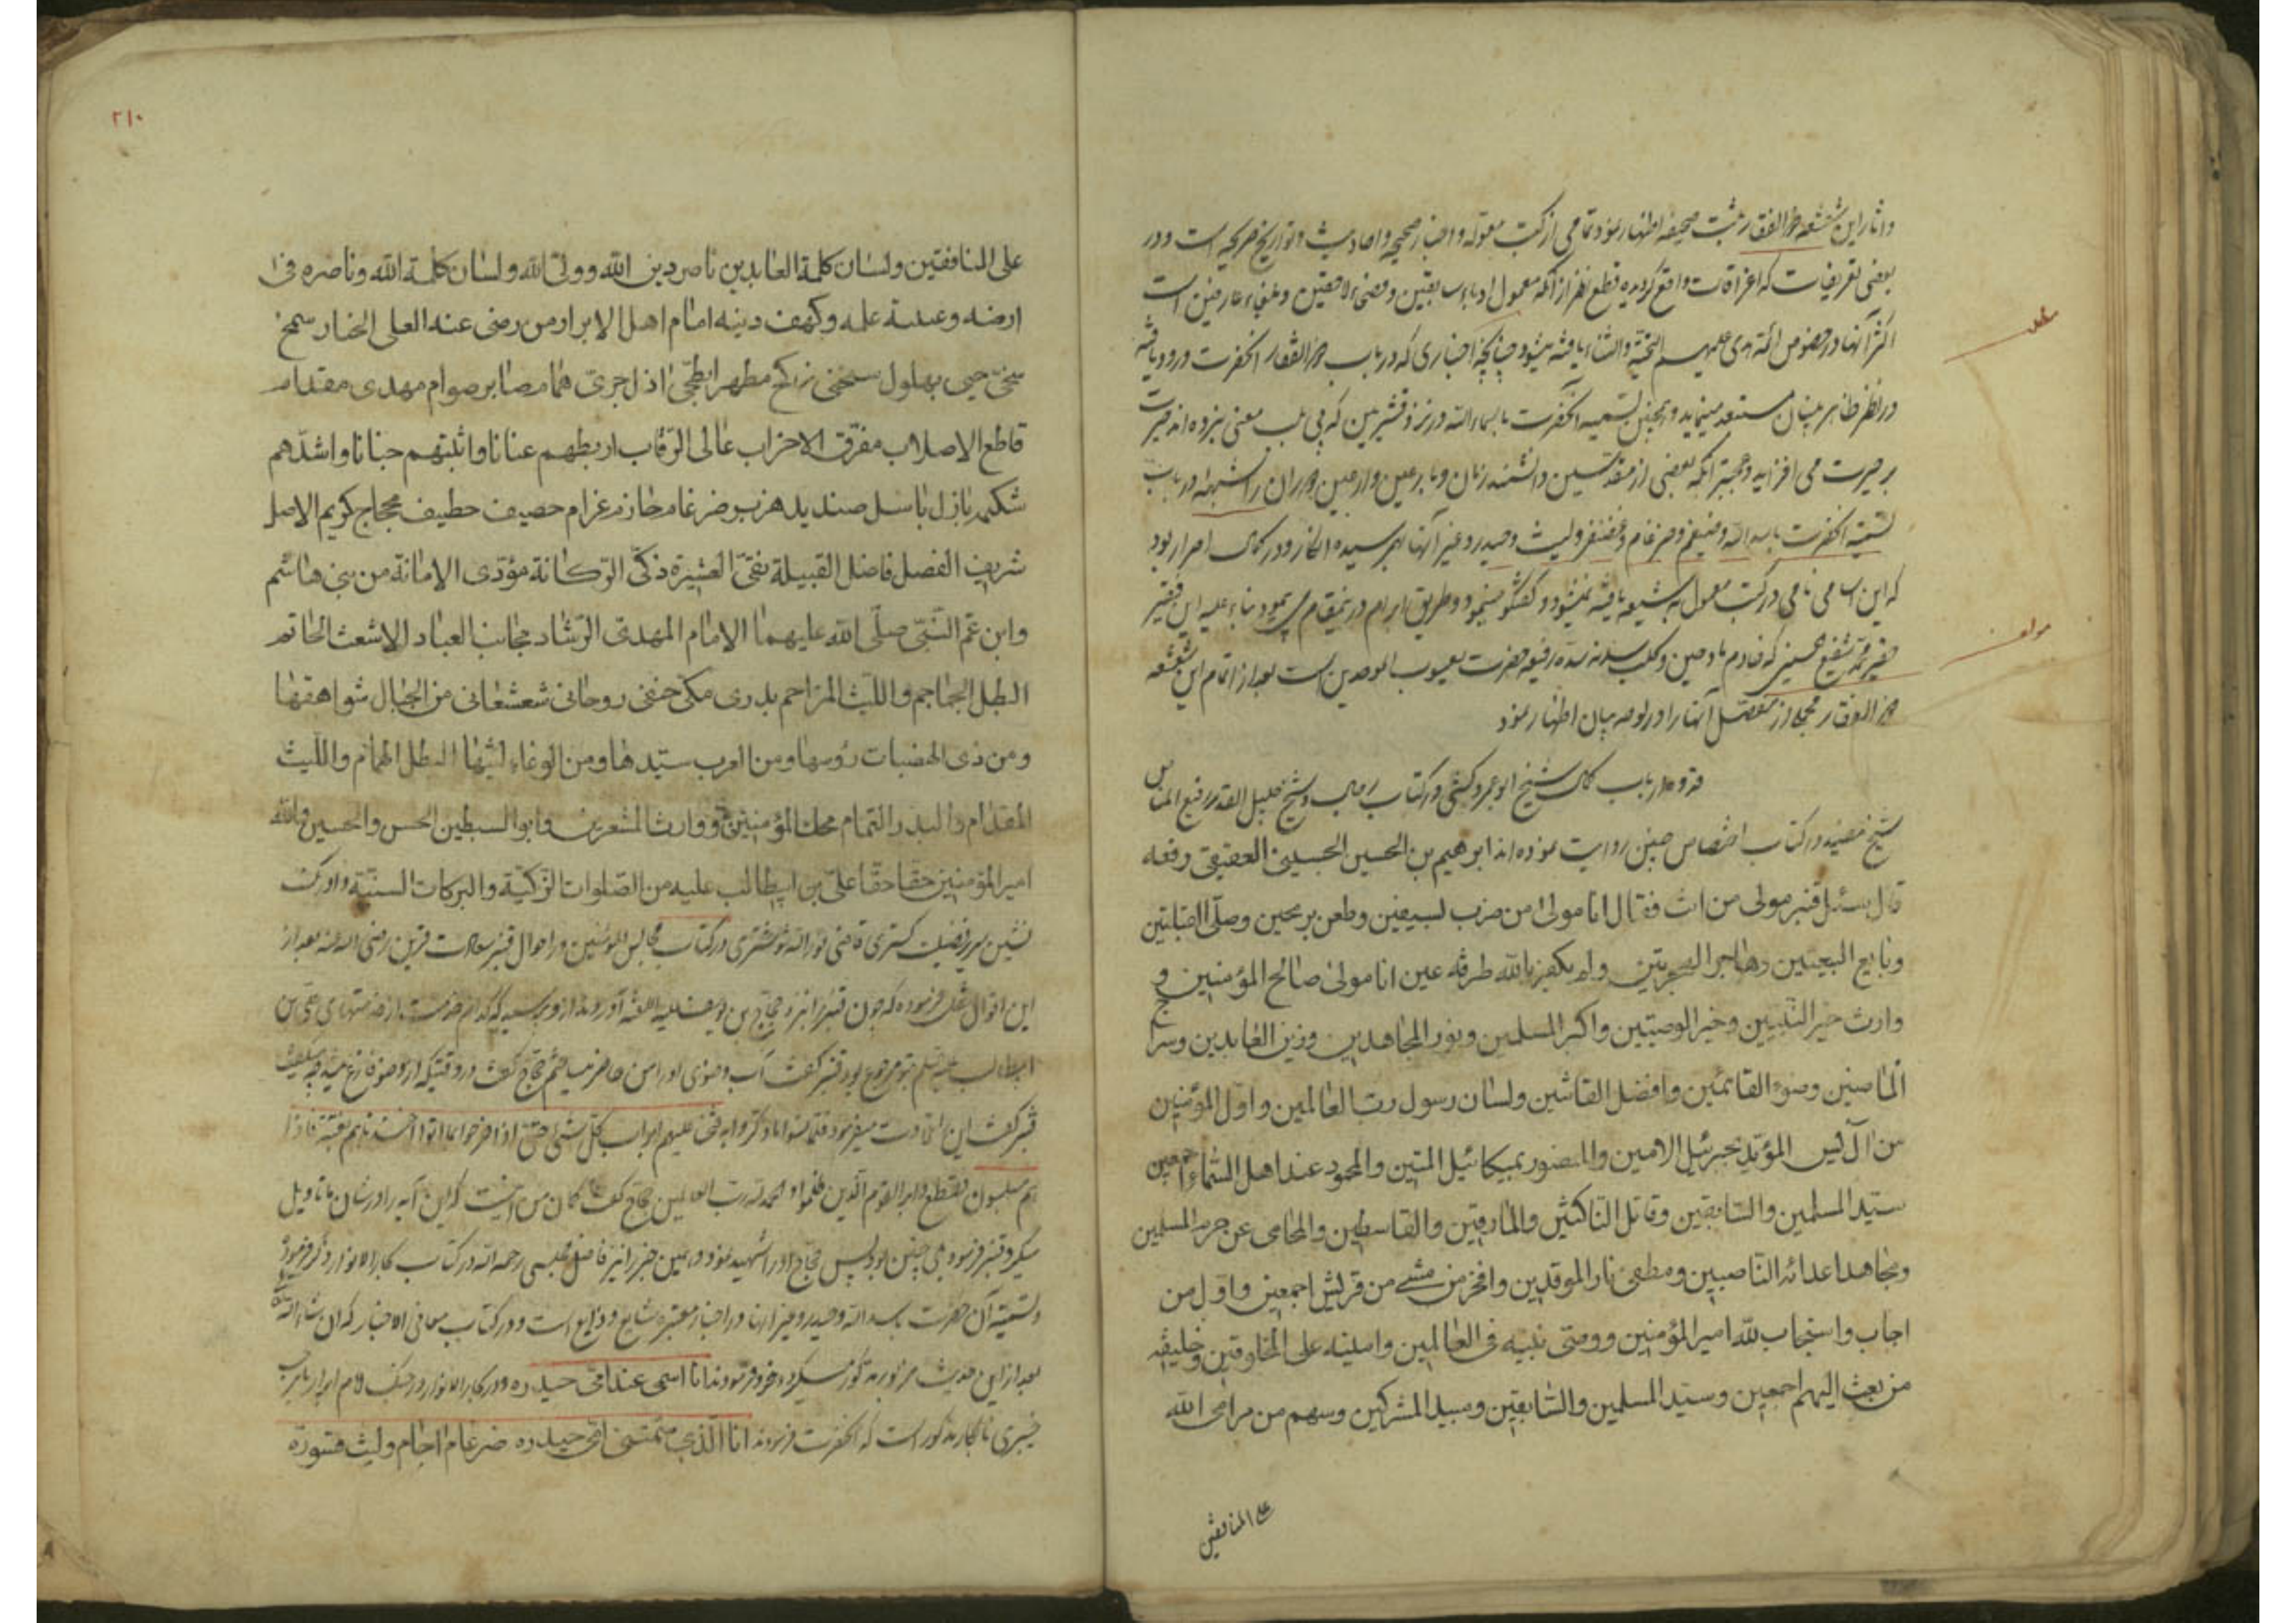 و آثار این شعشعه ذوالفقار ثبت صحیفه اظهار نمود تمامی از کتب مقبوله و اخبار صحیحه و احادیث و تواریخ صریحه است و در
بعضی تعریفات که اغراقات واقع گردیده قطع نظر از آنکه معمول ادباء سابقین و فصحاء لاحقین و بلغاء عارفین است
اکثر آنها در خصوص ائمه هدی علیهم التحیة والثناء یافته میشود چنانچه اخباری که در باب ذوالفقار آنحضرت ورود یافته
در نظر ظاهر بینان مستبعد مینماید و همچنین تسمیه آنحضرت باسماء الله در نزد قشریین که پی بلب معنی نبرده اند حیرت
بر حیرت می افزاید و عجبتر آنکه بعضی از مقدسین دانشمند زمان و دوران را شبهه در باب
تسمیه آنحضرت باسد الله و ضیغم و ضرغام و غضنفر و لیث و حیدر و غیر آنها بهم رسیده انکار و در کمال اصرار بود
که این اسامی نامی در کتب معمول به شیعه یافته نمیشود و گفتگو مینمود و طریق ابرام در اینمقام می پیمود بناء علیه این فقیر
حقیر محمد شفیع حسینی که خادم مادحین و کلب سده رفیعه حضرت یعسوب الموحدین است بعد از اتمام این شعشعه
ذوالفقار مجملا از مفصل آنها را در بیان اظهار نمود
قدوه ارباب کمال شیخ ابو عمرو کشی در کتاب رجال و شیخ جلیل القدر رفیع المناص
شیخ مفید در کتاب اختصاص چنین روایت نموده اند ابرهیم بن الحسین الحسینی العقیقی رفعه
قال سئل قنبر مولی من انت فقال انا مولی من ضرب بسیفین وطعن برمحین وصلی القبلتین
وبایع البیعتین وهاجر الهجرتین ولم یکفر بالله طرفة عین انا مولی صالح المؤمنین و
وارث خیر النبیین وخیر الوصیین واکبر المسلمین ونور المجاهدین وزین العابدین وسراج
الماضین وضوء القائمین وافضل القانتین ولسان رسول رب العالمین واول المؤمنین
من ال یس المؤید بجبرئیل الامین والمنصور بمیکائیل المتین والمحمود عند اهل السماء اجمعین
سید المسلمین والسابقین وقاتل الناکثین والمارقین والقاسطین والمحامی عن حرم المسلمین
ومجاهد اعدائه الناصبین ومطفی نار الموقدین وافخر من مشی من قریش اجمعین واول من
اجاب واستجاب لله امیر المؤمنین ووصی نبیه فی العالمین وامینه علی المخلوقین وخلیفة
من بعث الیهم اجمعین وسید المسلمین والسابقین ومبید المشرکین وسهم من مرامی الله
علی المنافقین
۲۱۰
علی المنافقین ولسان کلمة العابدین ناصر دین الله وولی الله ولسان کلمة الله وناصره فی
ارضه وعیبة علمه وکهف دینه امام اهل الابرار من رضی عنه العلی الجبار سمح
سخی حیی بهلول سنحنحی زکی مطهر ابطحی باذل جری همام صابر صوام مهدی مقدام
قاطع الاصلاب مفرق الاحزاب عالی الرقاب اربطهم عنانا واثبتهم جنانا واشدهم
شکیمة بازل باسل صندید هزبر ضرغام حازم عزام حصیف خطیف محجاج کریم الاصل
شریف الفضل فاضل القبیلة نقی العشیرة ذکی الرکانة مؤدی الامانة من بنی هاشم
وابن عم النبی صلی الله علیهما الامام المهدی الرشاد مجانب العباد الاشعث الحاتم
البطل الجماجم واللیث المزاحم بدری مکی حنفی روحانی شعشعانی من الجبال شواهقها
ومن ذی الهضبات رؤسها ومن العرب سیدها ومن الوغاء لیثها البطل الهمام واللیث
المقدام والبدر التمام محک المؤمنین ووارث المشعرین وابو السبطین الحسن والحسین والله
امیر المؤمنین حقا حقا علی بن ابیطالب علیه من الصلوات الزکیة والبرکات السنیة و اورنک
نشین سریر فضیلت کستری قاضی نور الله شوشتری در کتاب مجالس المؤمنین در احوال قنبر سعادت قرین رضی الله عنه بعد از
این اقوال نقل فرموده که چون قنبر را نزد حجاج بن یوسف علیه اللعنه آوردند از و پرسید که کدام خدمت از خدمتهای علی بن
ابیطالب علیه السلام بتو مرجوع بود قنبر گفت آب وضوی او را من حاضر میساختم حجاج گفت در وقتیکه از وضو فارغ میشد چه میگفت
قنبر گفت این آیه را تلاوت میفرمود فلما نسوا ما ذکروا به فتحنا علیهم ابواب کل شیء حتی اذا فرحوا بما اوتوا اخذناهم بغتة فاذا
هم مبلسون فقطع دابر القوم الذین ظلموا والحمد لله رب العالمین حجاج گفت گمان من آنست که این آیه را در شان ما تاویل
میکرد قنبر فرمود بلی چنین بود پس حجاج او را شهید نمود و همین خبر را نیز فاضل مجلسی رحمه الله در کتاب بحار الانوار ذکر فرموده
و تسمیه آن حضرت باسد الله و حیدر و غیر آنها در اخبار معتبره شایع و ذایع است و در کتاب معانی الاخبار که ان شاء الله
بعد از این حدیث مزبور مذکور میگردد فرمودند انا اسمی عند امی حیدره و در بحار الانوار در جنک
خیبری نابکار مذکور است که آنحضرت فرمودند انا الذی سمتنی امی حیدره ضرغام اجام ولیث قسوره